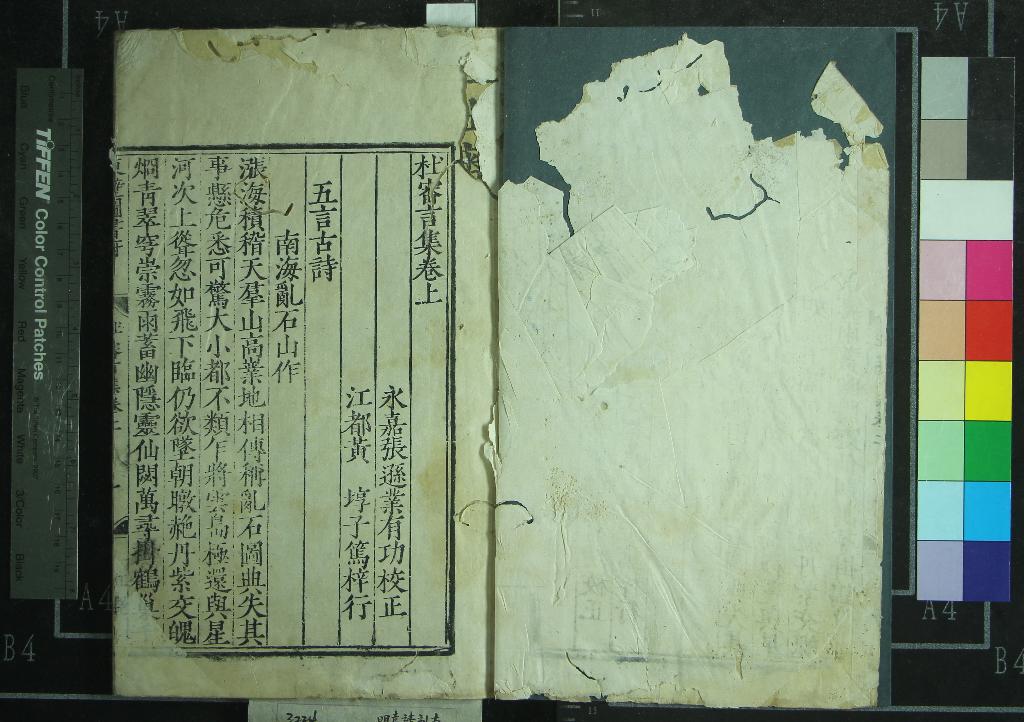 杜審言集卷上
永嘉張遜業有功校正
江都黃　埻子篤梓行
五言古詩
南海亂石山作
漲海積稽天羣山高業地相傳稱亂石圖典失其
事懸危悉可驚大小都不類乍將雲島極還與星
河次上聳忽如飛下臨仍欲墜朝暾艴丹紫夜魄
烱青翠穹崇霧雨蓄幽隱靈仙閟萬尋掛鶴巢
TIFFEN Color Control Patches
Blue Cyan Green Yellow Red Magenta White 3/Color Black
A4
A4
B4